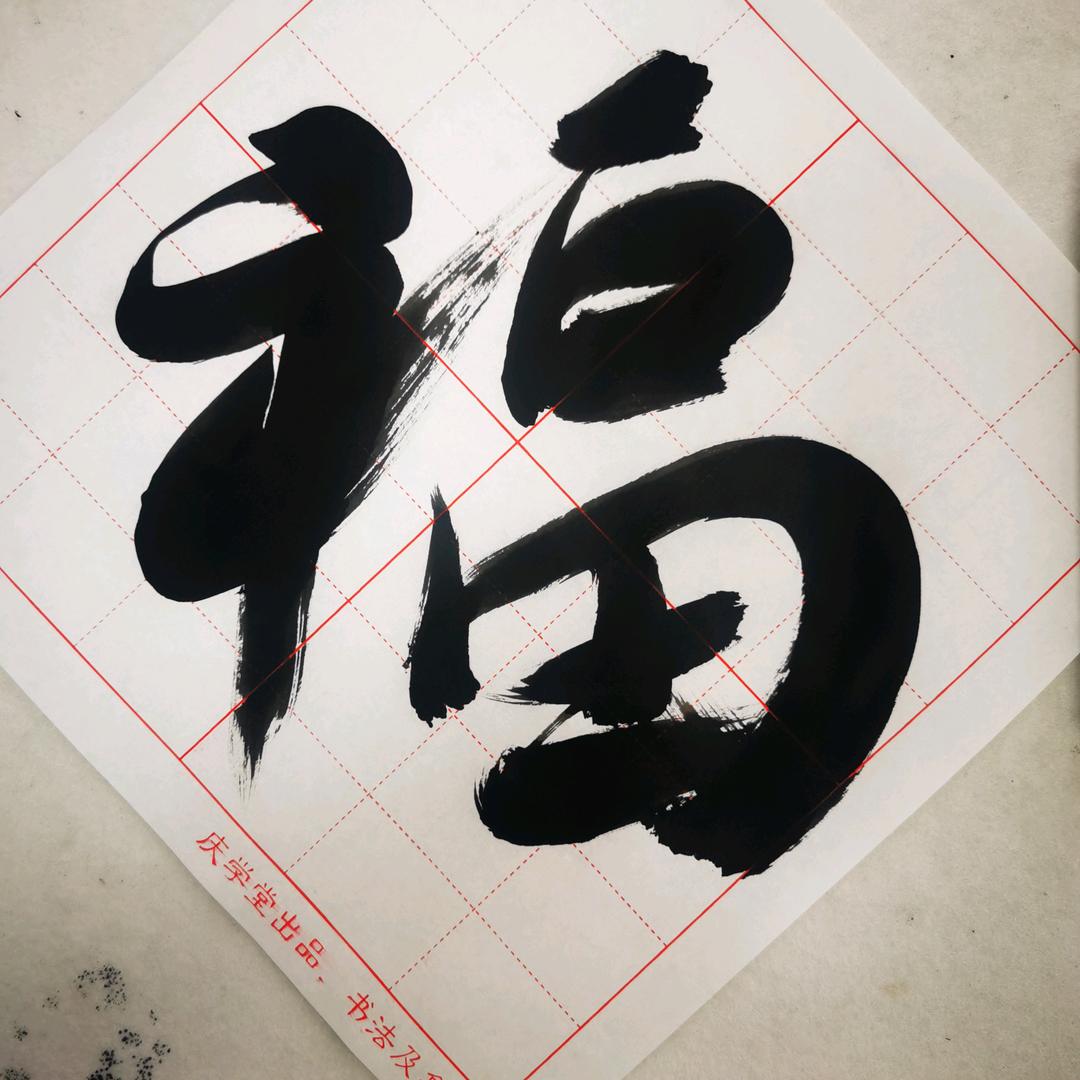 福
庆学堂出品，书法及